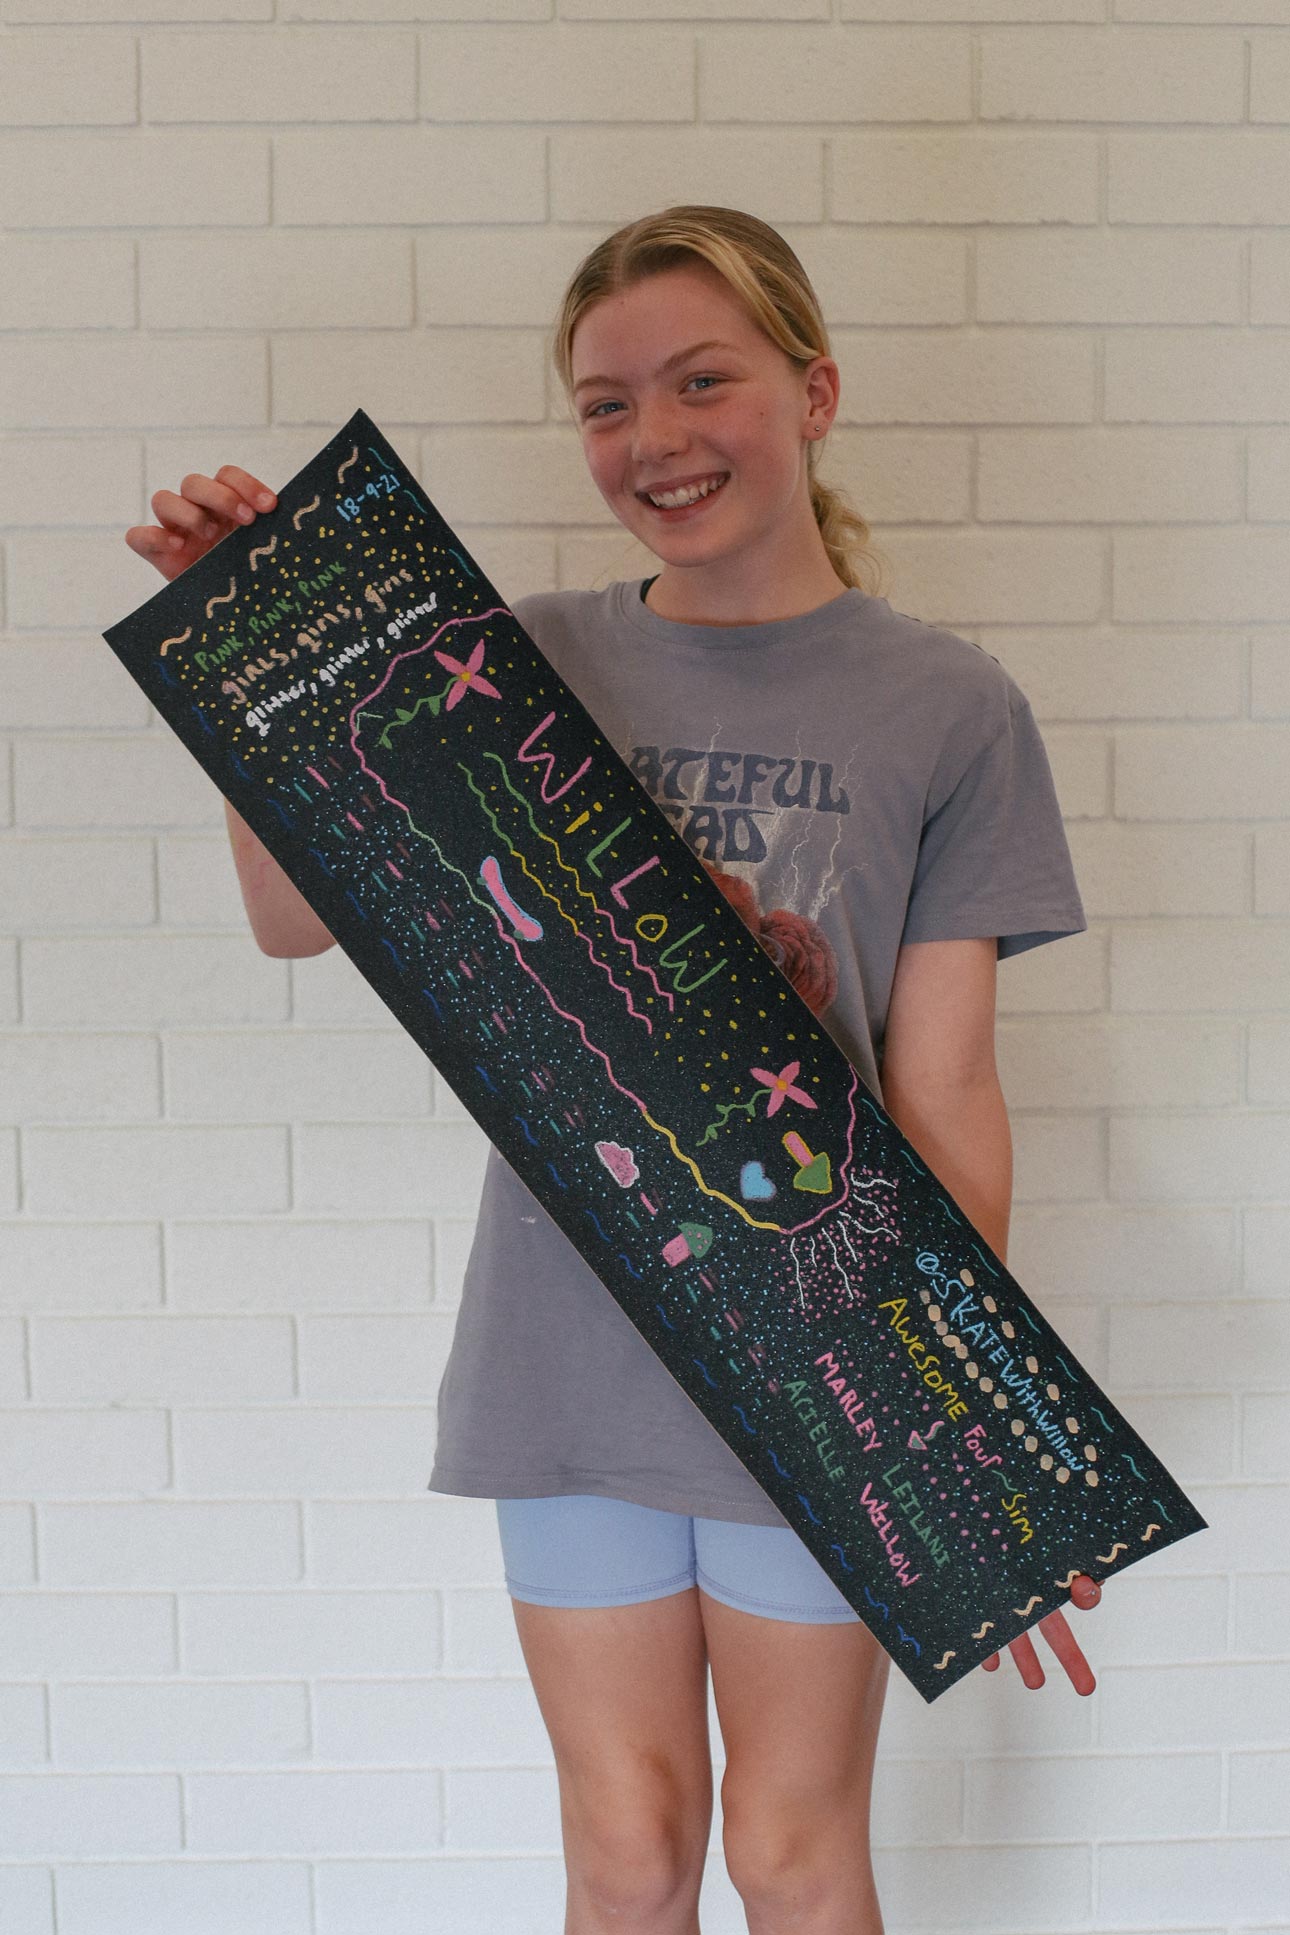 18-9-21
PINK, PINK, PINK
girls, girls, girls
glitter, glitter, glitter
WiLLoW
ATEFUL
EAD
@SKATEWithWillow
AWeSOME Four ~ Sim
MARLEY LEILANI
ArIELLE WILLOW